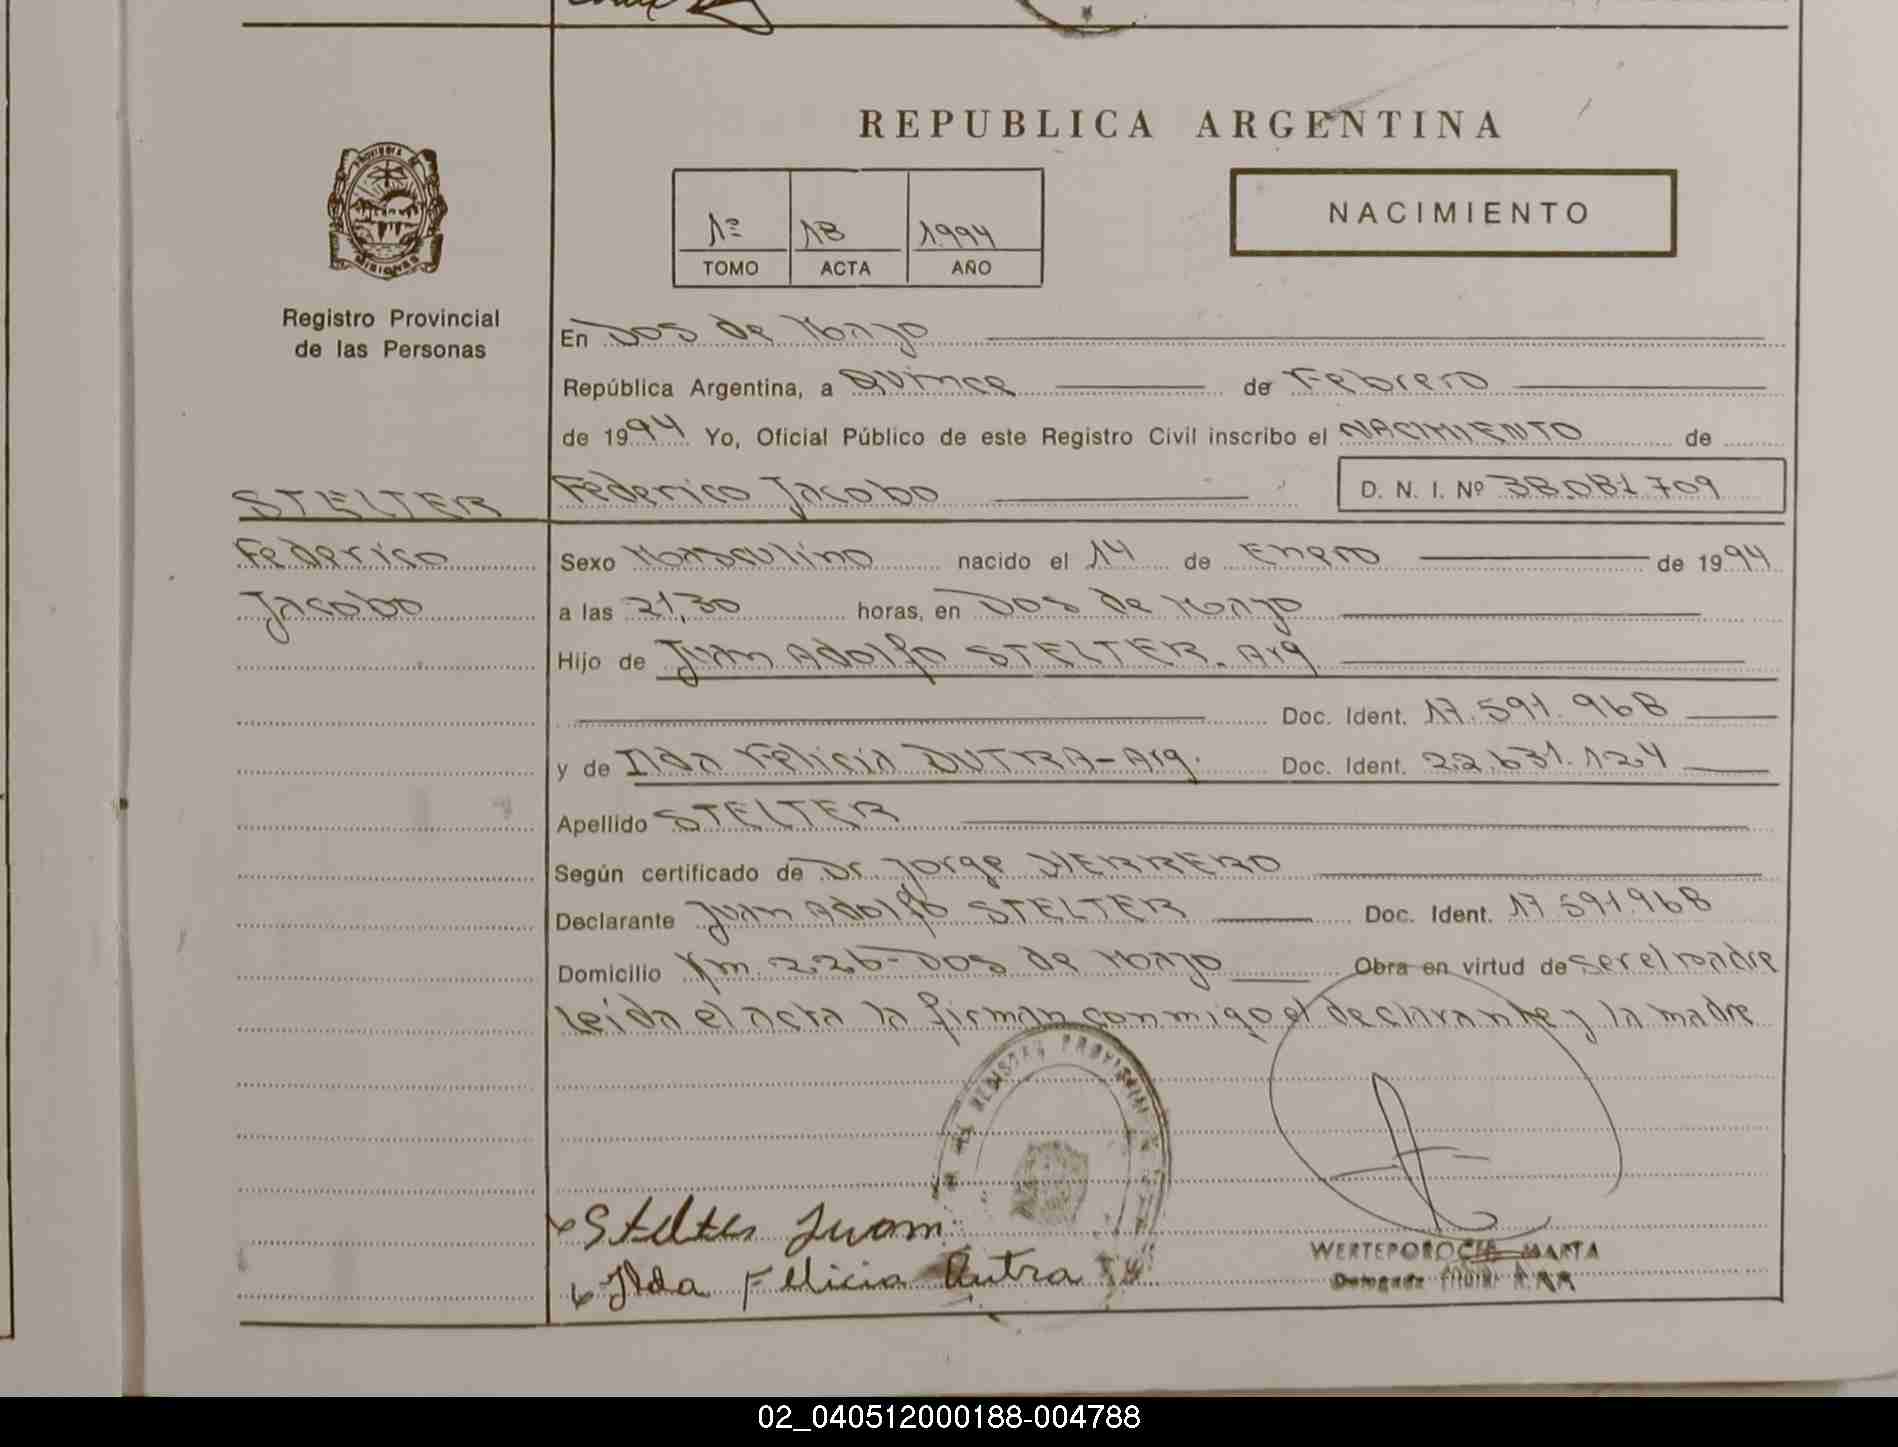 REPUBLICA ARGENTINA
Misiones
Registro Provincial
de las Personas
1º 18 1994
TOMO ACTA AÑO
NACIMIENTO
En Dos de Mayo
República Argentina, a Quince de Febrero
de 1994 Yo, Oficial Público de este Registro Civil inscribo el NACIMIENTO de
STELTER Federico Jacobo D. N. I. Nº 38.081.709
Federico Sexo Masculino nacido el 14 de Enero de 1994
Jacobo a las 21,30 horas, en Dos de Mayo
Hijo de Juan Adolfo STELTER. Arg
Doc. Ident. 17.591.968
y de Ilda Felicia DUTRA-Arg. Doc. Ident. 22.631.124
Apellido STELTER
Según certificado de Dr. Jorge HERRERO
Declarante Juan Adolfo STELTER Doc. Ident. 17 591.968
Domicilio Km. 226-Dos de Mayo Obra en virtud de ser el padre
Leida el acta la firman conmigo el declarante y la madre
REGISTRO PROVINCIAL
Stelter Juan
Ilda Felicia Dutra
MARTA
Delegada
02_040512000188-004788